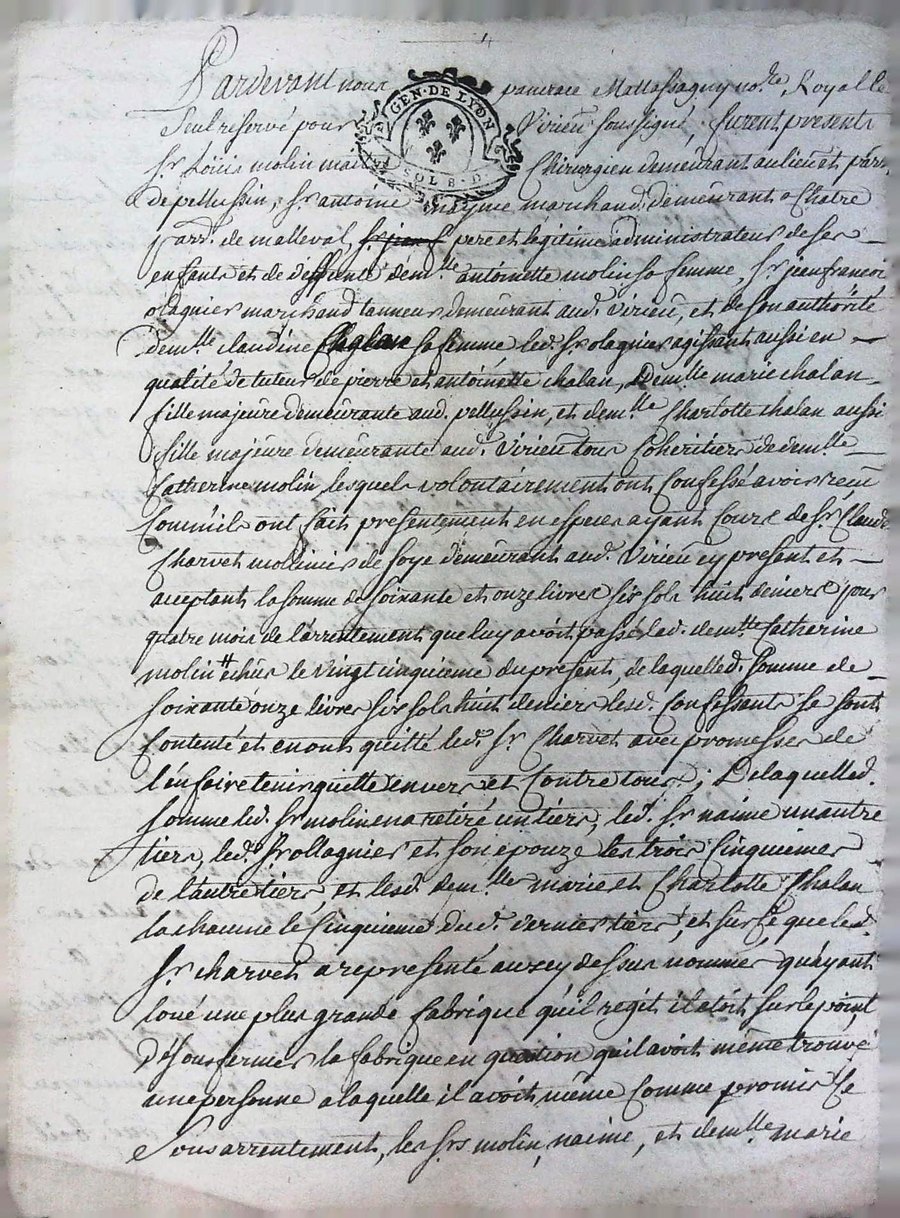 4
Pardevant nous pancrace Mattassagny no.re Royal le
Seul reservé pour Virieu soussigné, furent presents
GEN. DE LYON
SOL 8. D.
Sr. Loüis molin Chirurgien demeurant au lieu et parr.
de pellussin, Sr. antoine nayme marchand demeurant a Chatre
parr. de malleval, pere et legitime administrateur de ses
enfants et de deffunte demlle antoinette molin sa femme, Sr. jean francoi
olagnier marchand tanneur demeurant aud. Virieu, et de son authorité
demlle claudine Chalan sa femme led. Sr. olagnier agissant aussi en
qualité de tuteur de pierre et antoinette chalan, Demlle marie chalan
fille majeure demeurante aud. pellussin, et demlle Charlotte chalan aussi
fille majeure demeurante aud. Virieu tous Coheritiers de demlle
Catherine molin, lesquels volontairement ont Confessé avoir reçu
Comm'ils ont fait presentement en especes ayant Cours de Sr. Claude
Charvet moulinier de soye demeurant aud. Virieu cy present et
acceptant la somme de soixante et onze livres six sols huit deniers pour
quatre mois de l'arrentement que luy avoit passé lad. demlle Catherine
molin # échus le vingt cinquieme du present, de laquelle d. somme de
soixante onze livres six sols huit deniers lesd. Confessants se sont
Contenté et en ont quitté led. Sr. Charvet avec promesse de
l'en faire tenir quitte envers et Contre tous; De laquelle d.
somme led. Sr. molin en a retiré un tiers, led. Sr. naime un autre
tiers, led. Sr. ollagnier et son épouze les trois Cinquiemes
de l'autre tiers, et lesd. demlles marie et Charlotte Chalan
la chacune le Cinquieme dud. dernier tiers, et sur Ce que led.
Sr. charvet a representé aux cy dessus nommés qu'ayant
loué une plus grande fabrique qu'il regit il etoit sur le point
De sousfermer la fabrique en question qu'il avoit même trouvé
une personne a laquelle il avoit même Comme promis Ce
Sous arrentement, les Srs. molin, naime, et demlle marie